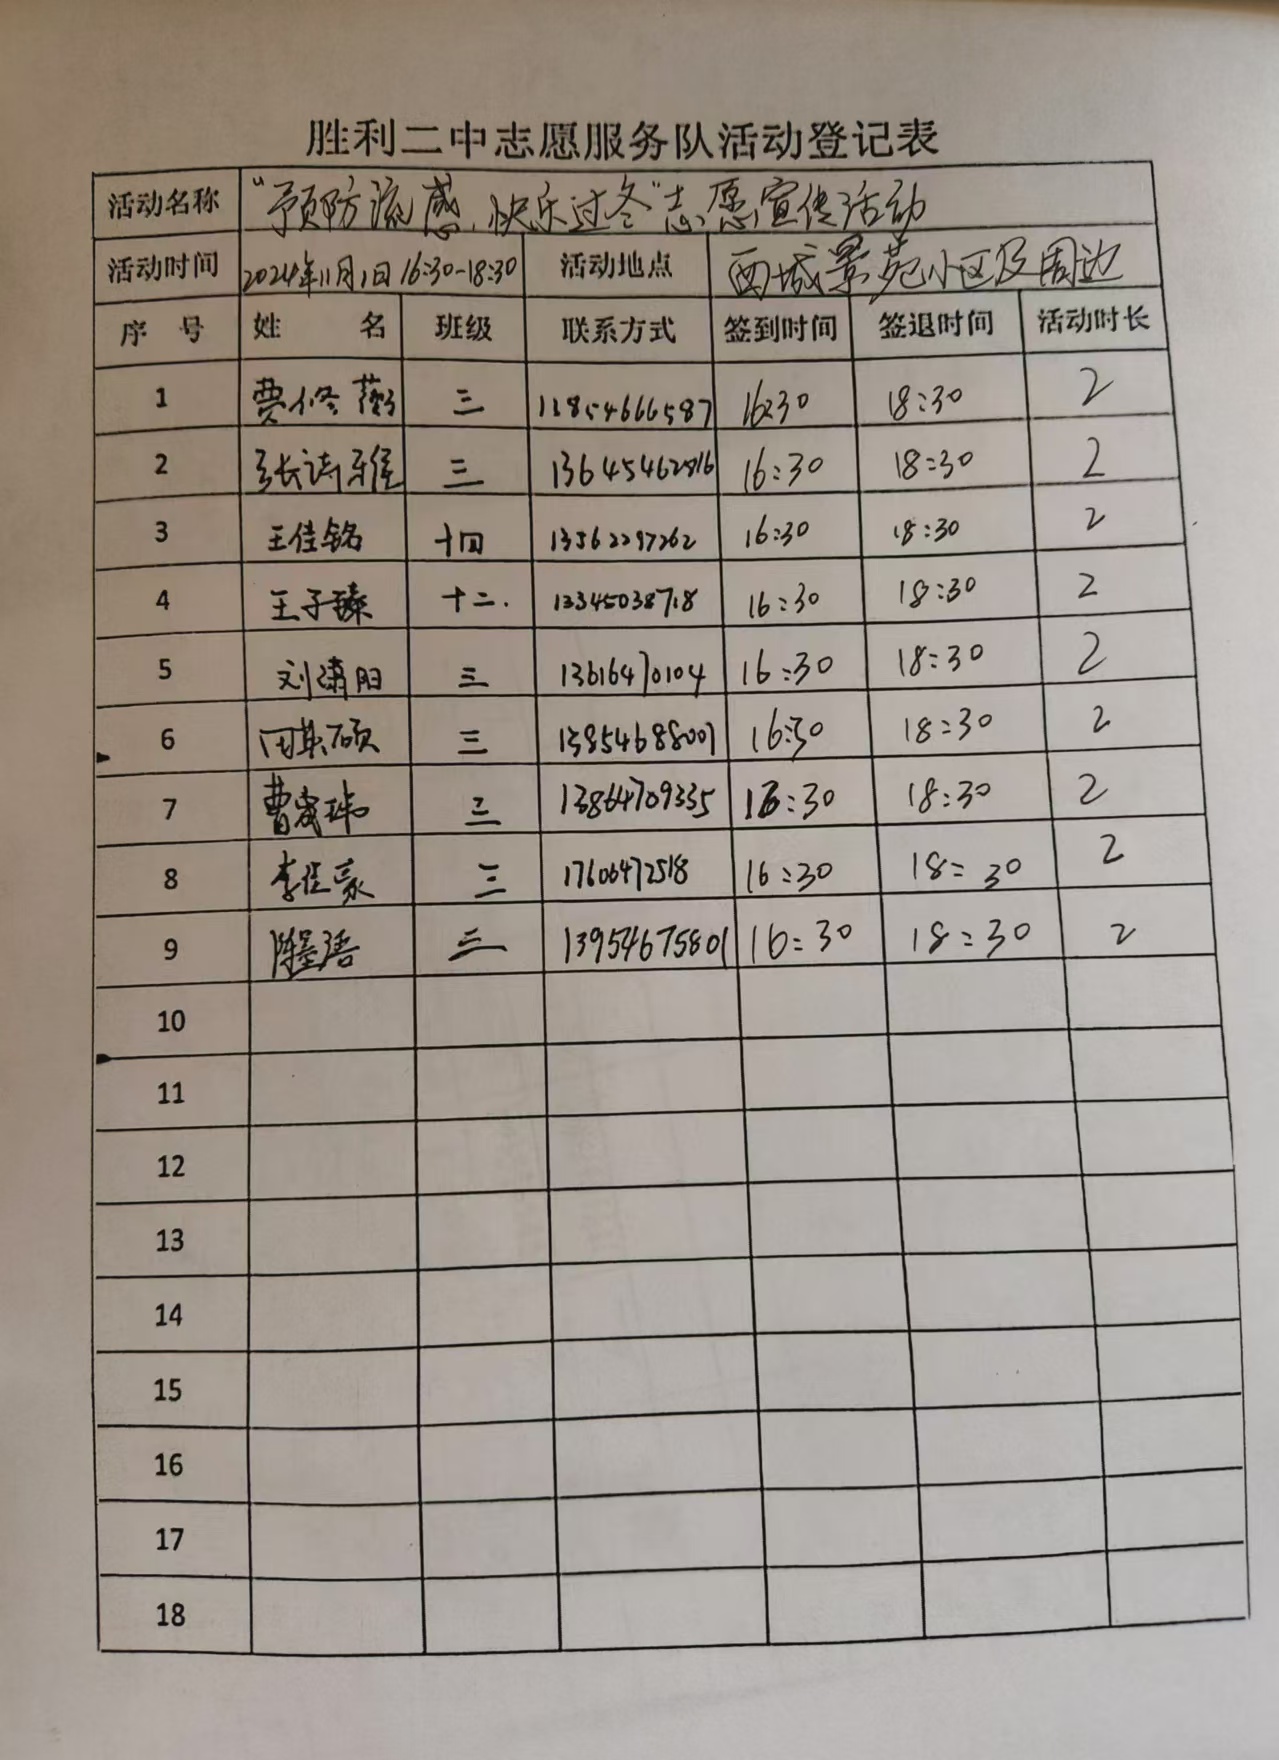 胜利二中志愿服务队活动登记表
活动名称 "预防流感,快乐过冬"志愿宣传活动
活动时间 2024年11月1日 16:30-18:30 活动地点 西城景苑小区及周边
序 号 姓 名 班级 联系方式 签到时间 签退时间 活动时长
1 费修 三 16:30 18:30 2
2 张诗雅 三 16:30 18:30 2
3 王佳铭 十四 13562297262 16:30 18:30 2
4 王子臻 十二. 13345038718 16:30 18:30 2
5 刘潇阳 三 13616470104 16:30 18:30 2
6 田其硕 三 13854688001 16:30 18:30 2
7 曹 玮 三 13864709335 16:30 18:30 2
8 李佳家 三 17606472518 16:30 18:30 2
9 陈墨语 三 13954675801 16:30 18:30 2
10
11
12
13
14
15
16
17
18